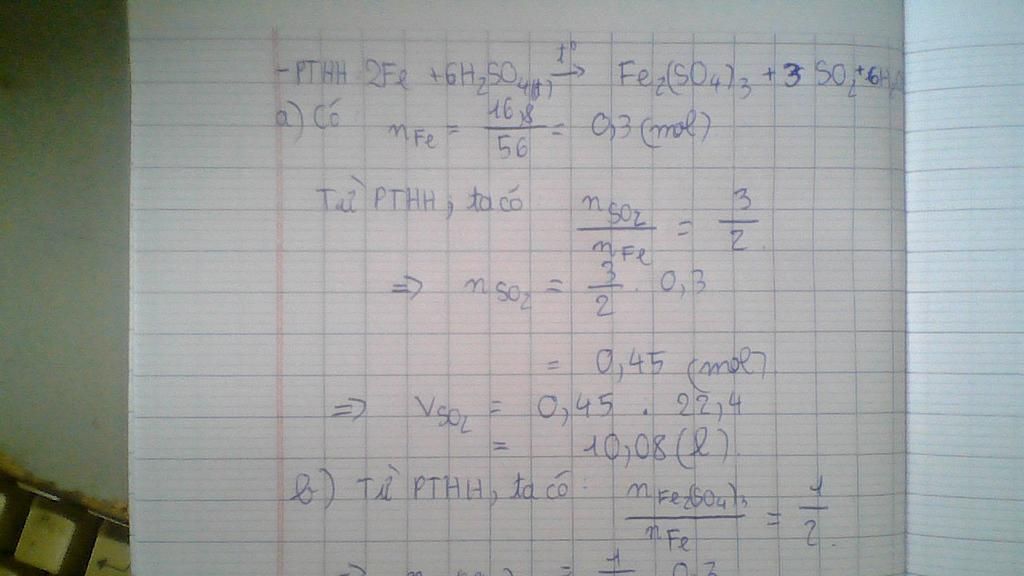 -PTHH 2Fe + 6H₂SO₄(đ) t° → Fe₂(SO₄)₃ + 3 SO₂ + 6H₂O
a) Có n Fe = 16,8 / 56 = 0,3 (mol)
Từ PTHH, ta có n SO₂ / n Fe = 3 / 2.
=> n SO₂ = 3 / 2 . 0,3
= 0,45 (mol)
=> V SO₂ = 0,45 . 22,4
= 10,08 (l).
b) Từ PTHH, ta có: n Fe₂(SO₄)₃ / n Fe = 1 / 2.
=> = 1 0,3